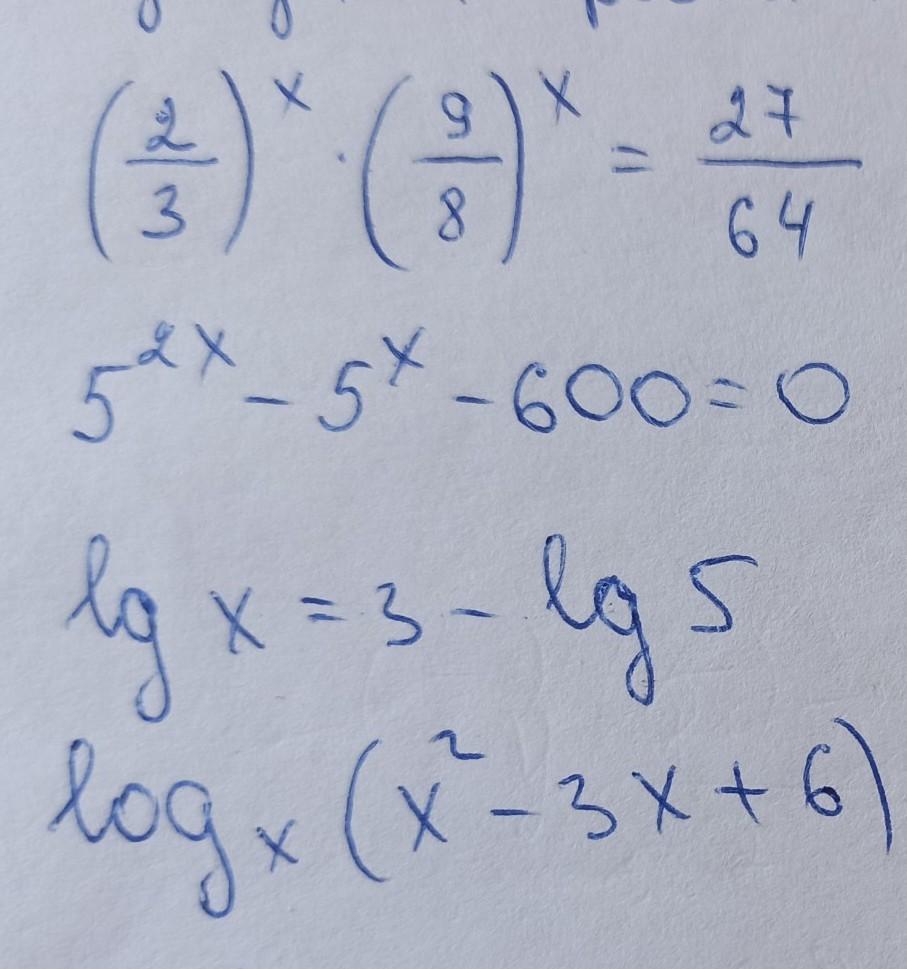 (2/3)^x · (9/8)^x = 27/64
5^2x - 5^x - 600 = 0
lg x = 3 - lg 5
log_x (x² - 3x + 6)